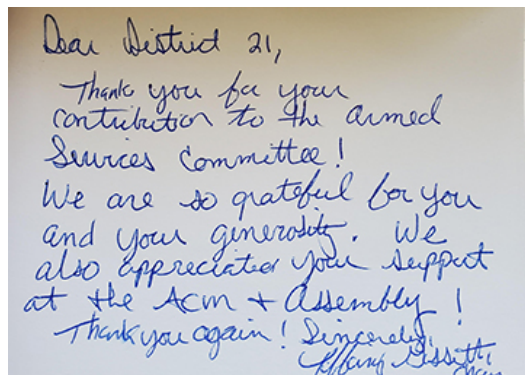 Dear District 21,
Thank you for your
contribution to the Armed
Services Committee!
We are so grateful for you
and your generosity. We
also appreciated your support
at the ACM + Assembly!
Thank you again! Sincerely,